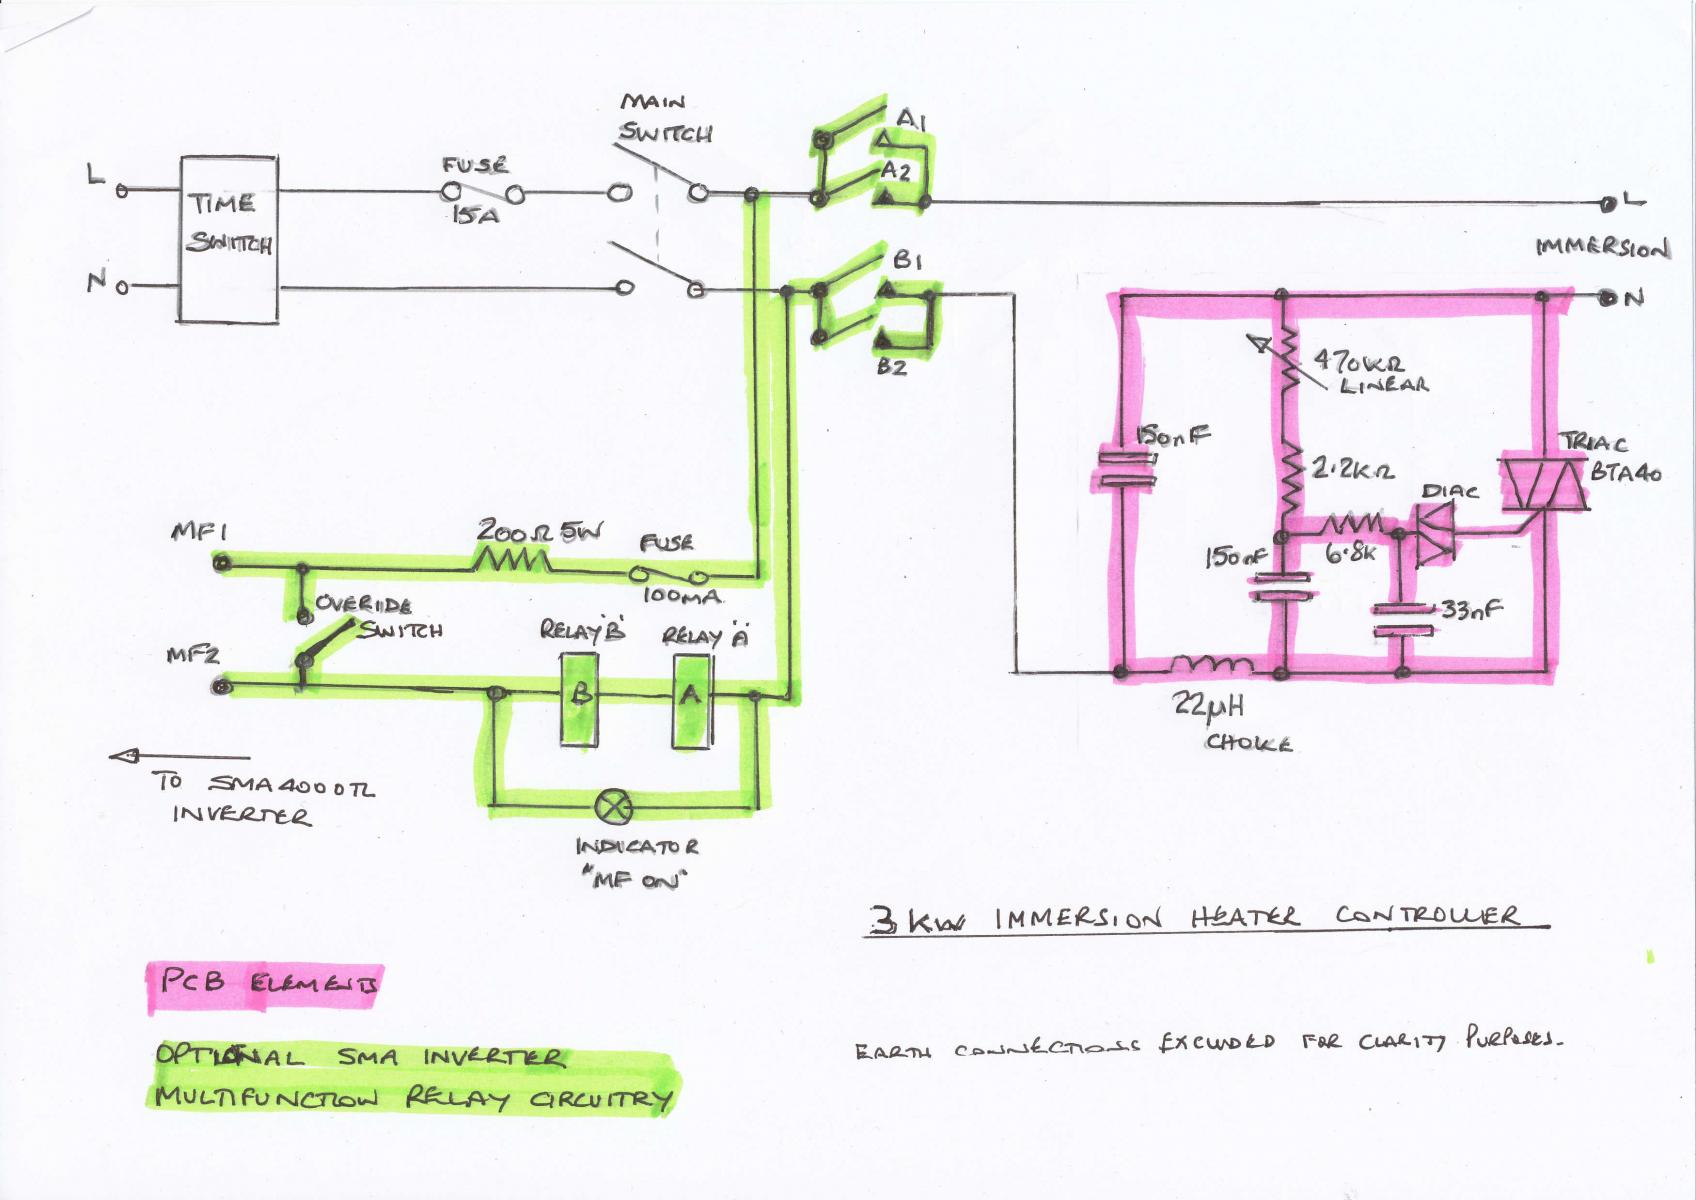 MAIN
SWITCH
A1
A2
L
FUSE
15A
TIME
SWITCH
L
IMMERSION
N
B1
B2
N
470KΩ
LINEAR
150nF
TRIAC
BTA40
2.2KΩ
DIAC
MF1
200Ω 5W
FUSE
100MA
150nF
6.8K
33nF
OVERIDE
SWITCH
RELAY 'B'
RELAY "A"
MF2
B
A
22µH
CHOKE
TO SMA4000TL
INVERTER
INDICATOR
"MF ON"
3KW IMMERSION HEATER CONTROLLER
PCB ELEMENTS
EARTH CONNECTIONS EXCLUDED FOR CLARITY PURPOSES.
OPTIONAL SMA INVERTER
MULTIFUNCTION RELAY CIRCUITRY